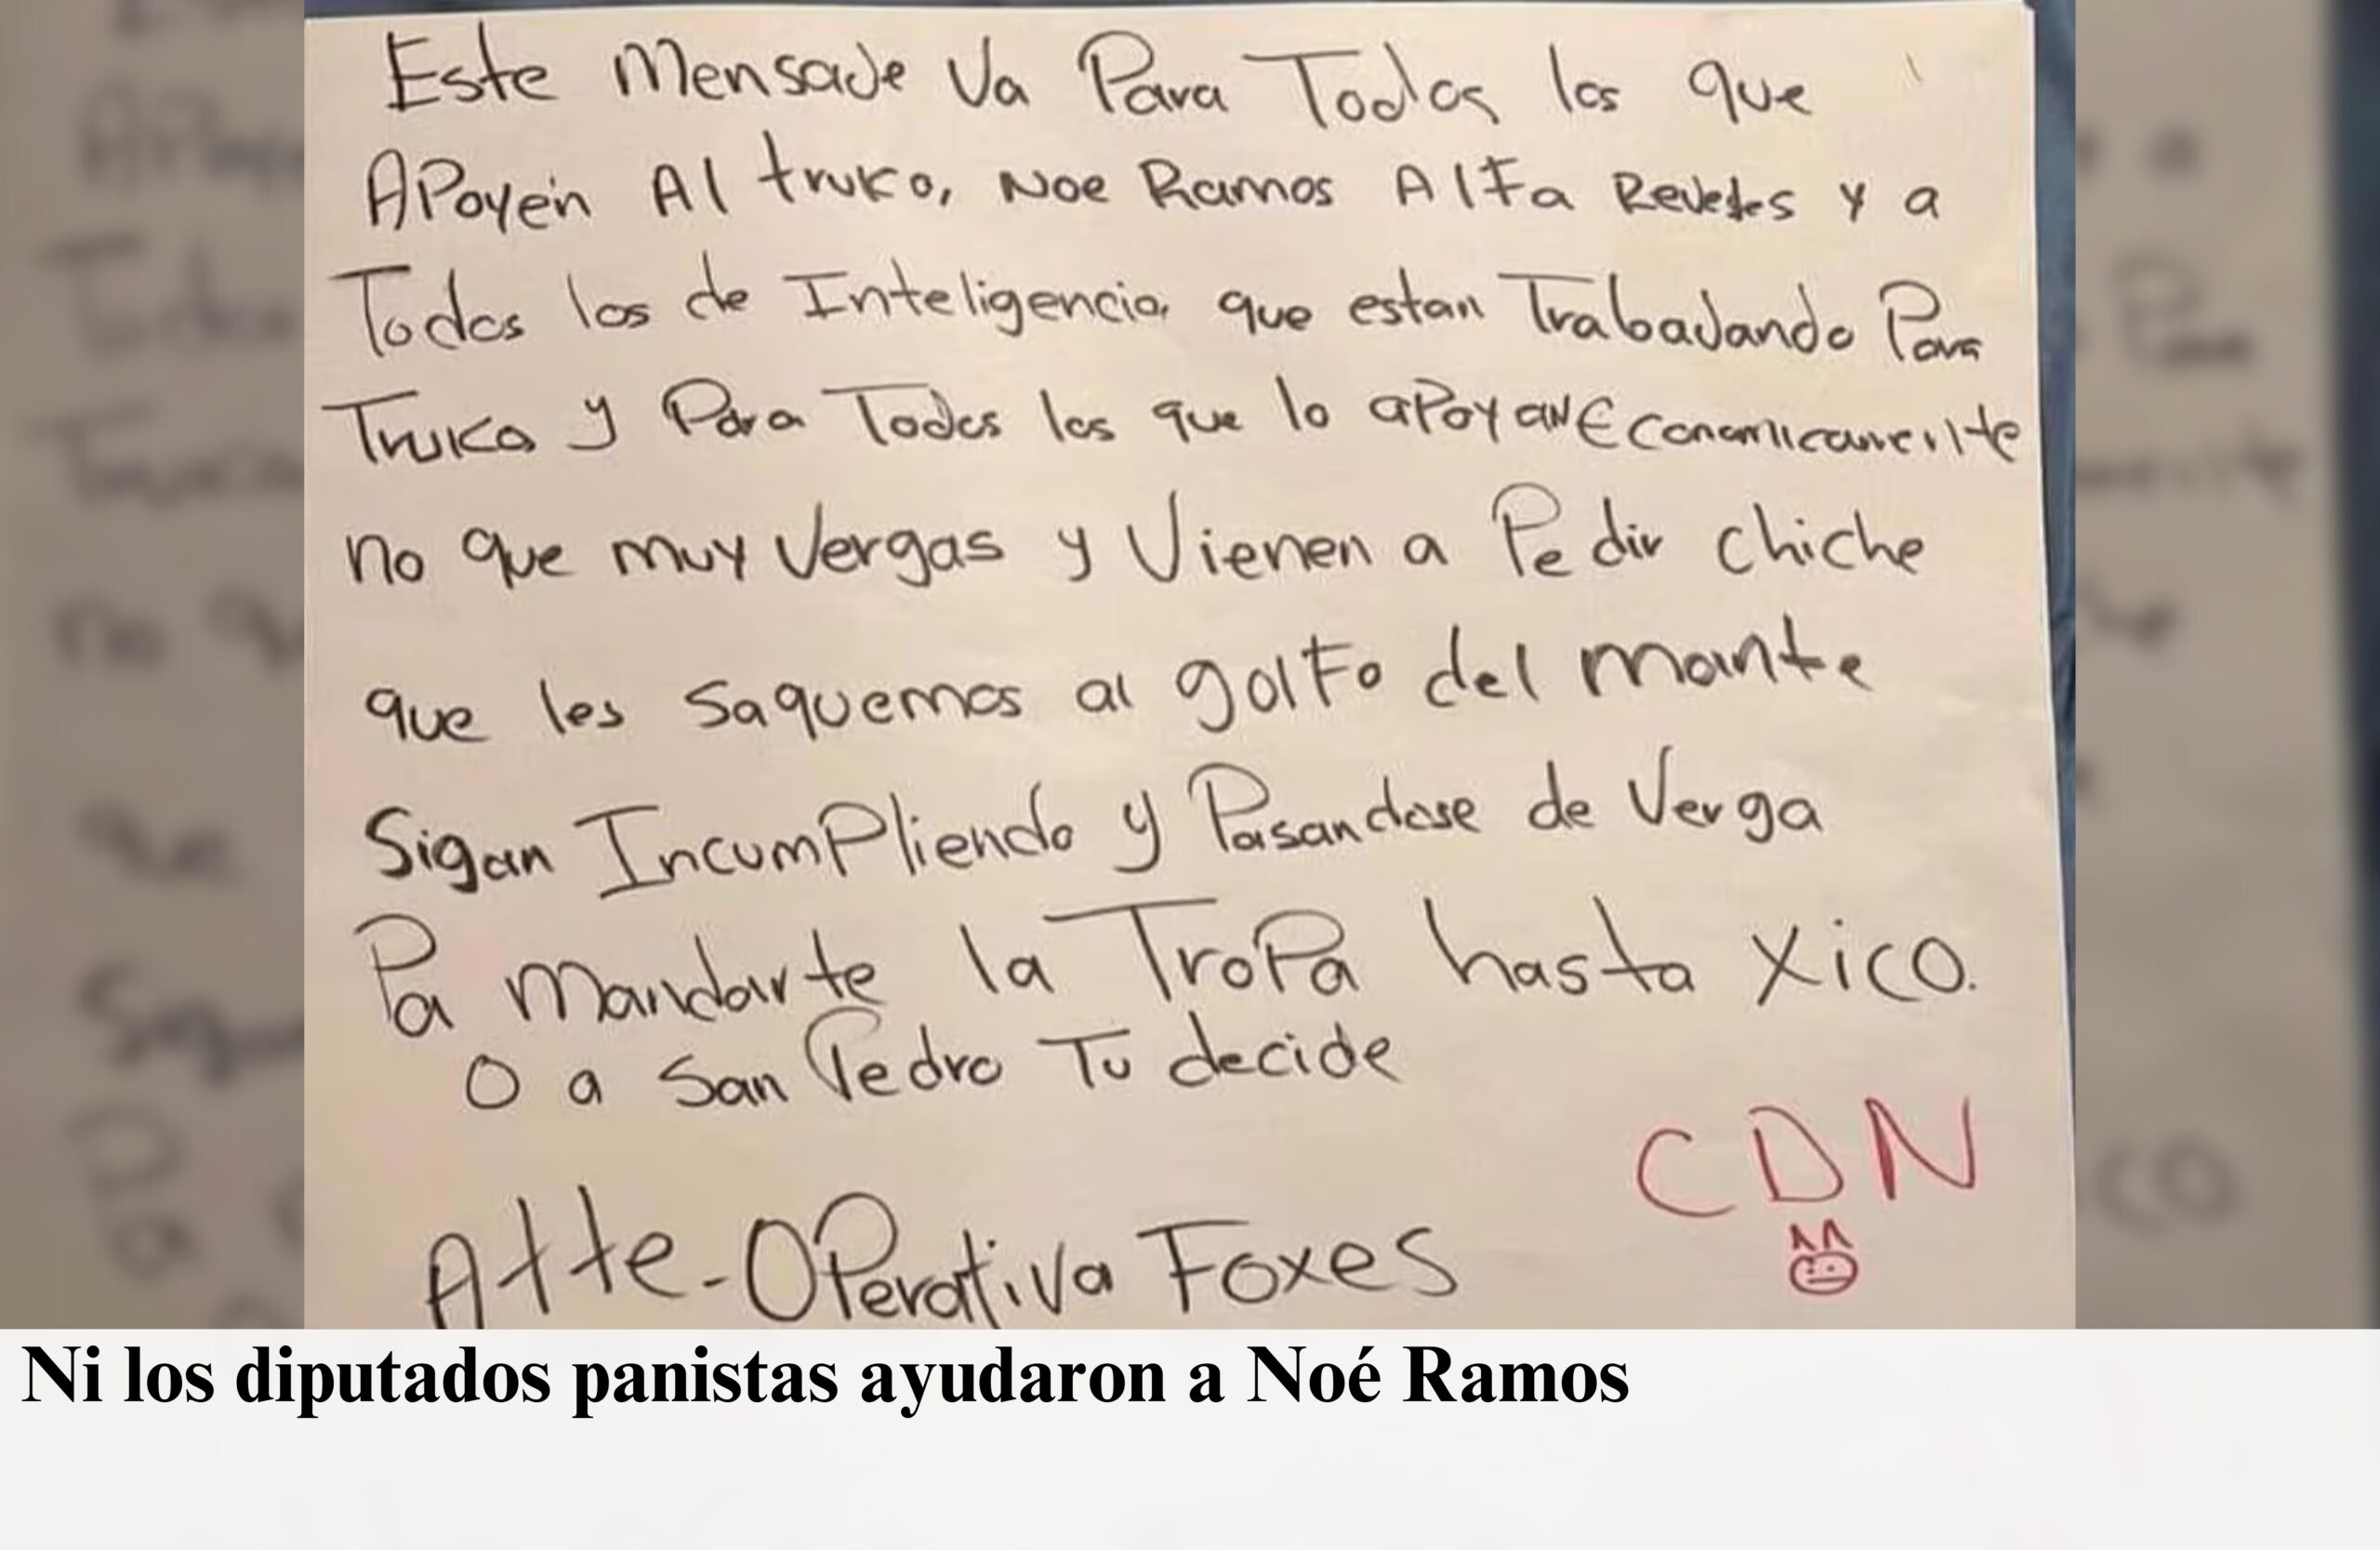 Este Mensaje Va Para Todos los que
APoyen Al truko, Noe Ramos Alfa Reveles y a
Todos los de Inteligencia que estan Trabajando Para
Truko y Para Todos los que lo aPoyan Economicamente
no que muy Vergas y Vienen a Pedir chiche
que les saquemos al golfo del mante
Sigan IncumPliendo y Pasandose de Verga
Pa mandarte la TroPa hasta Xico.
O a San Pedro Tu decide
CDN
Atte-OPerativa Foxes
Ni los diputados panistas ayudaron a Noé Ramos